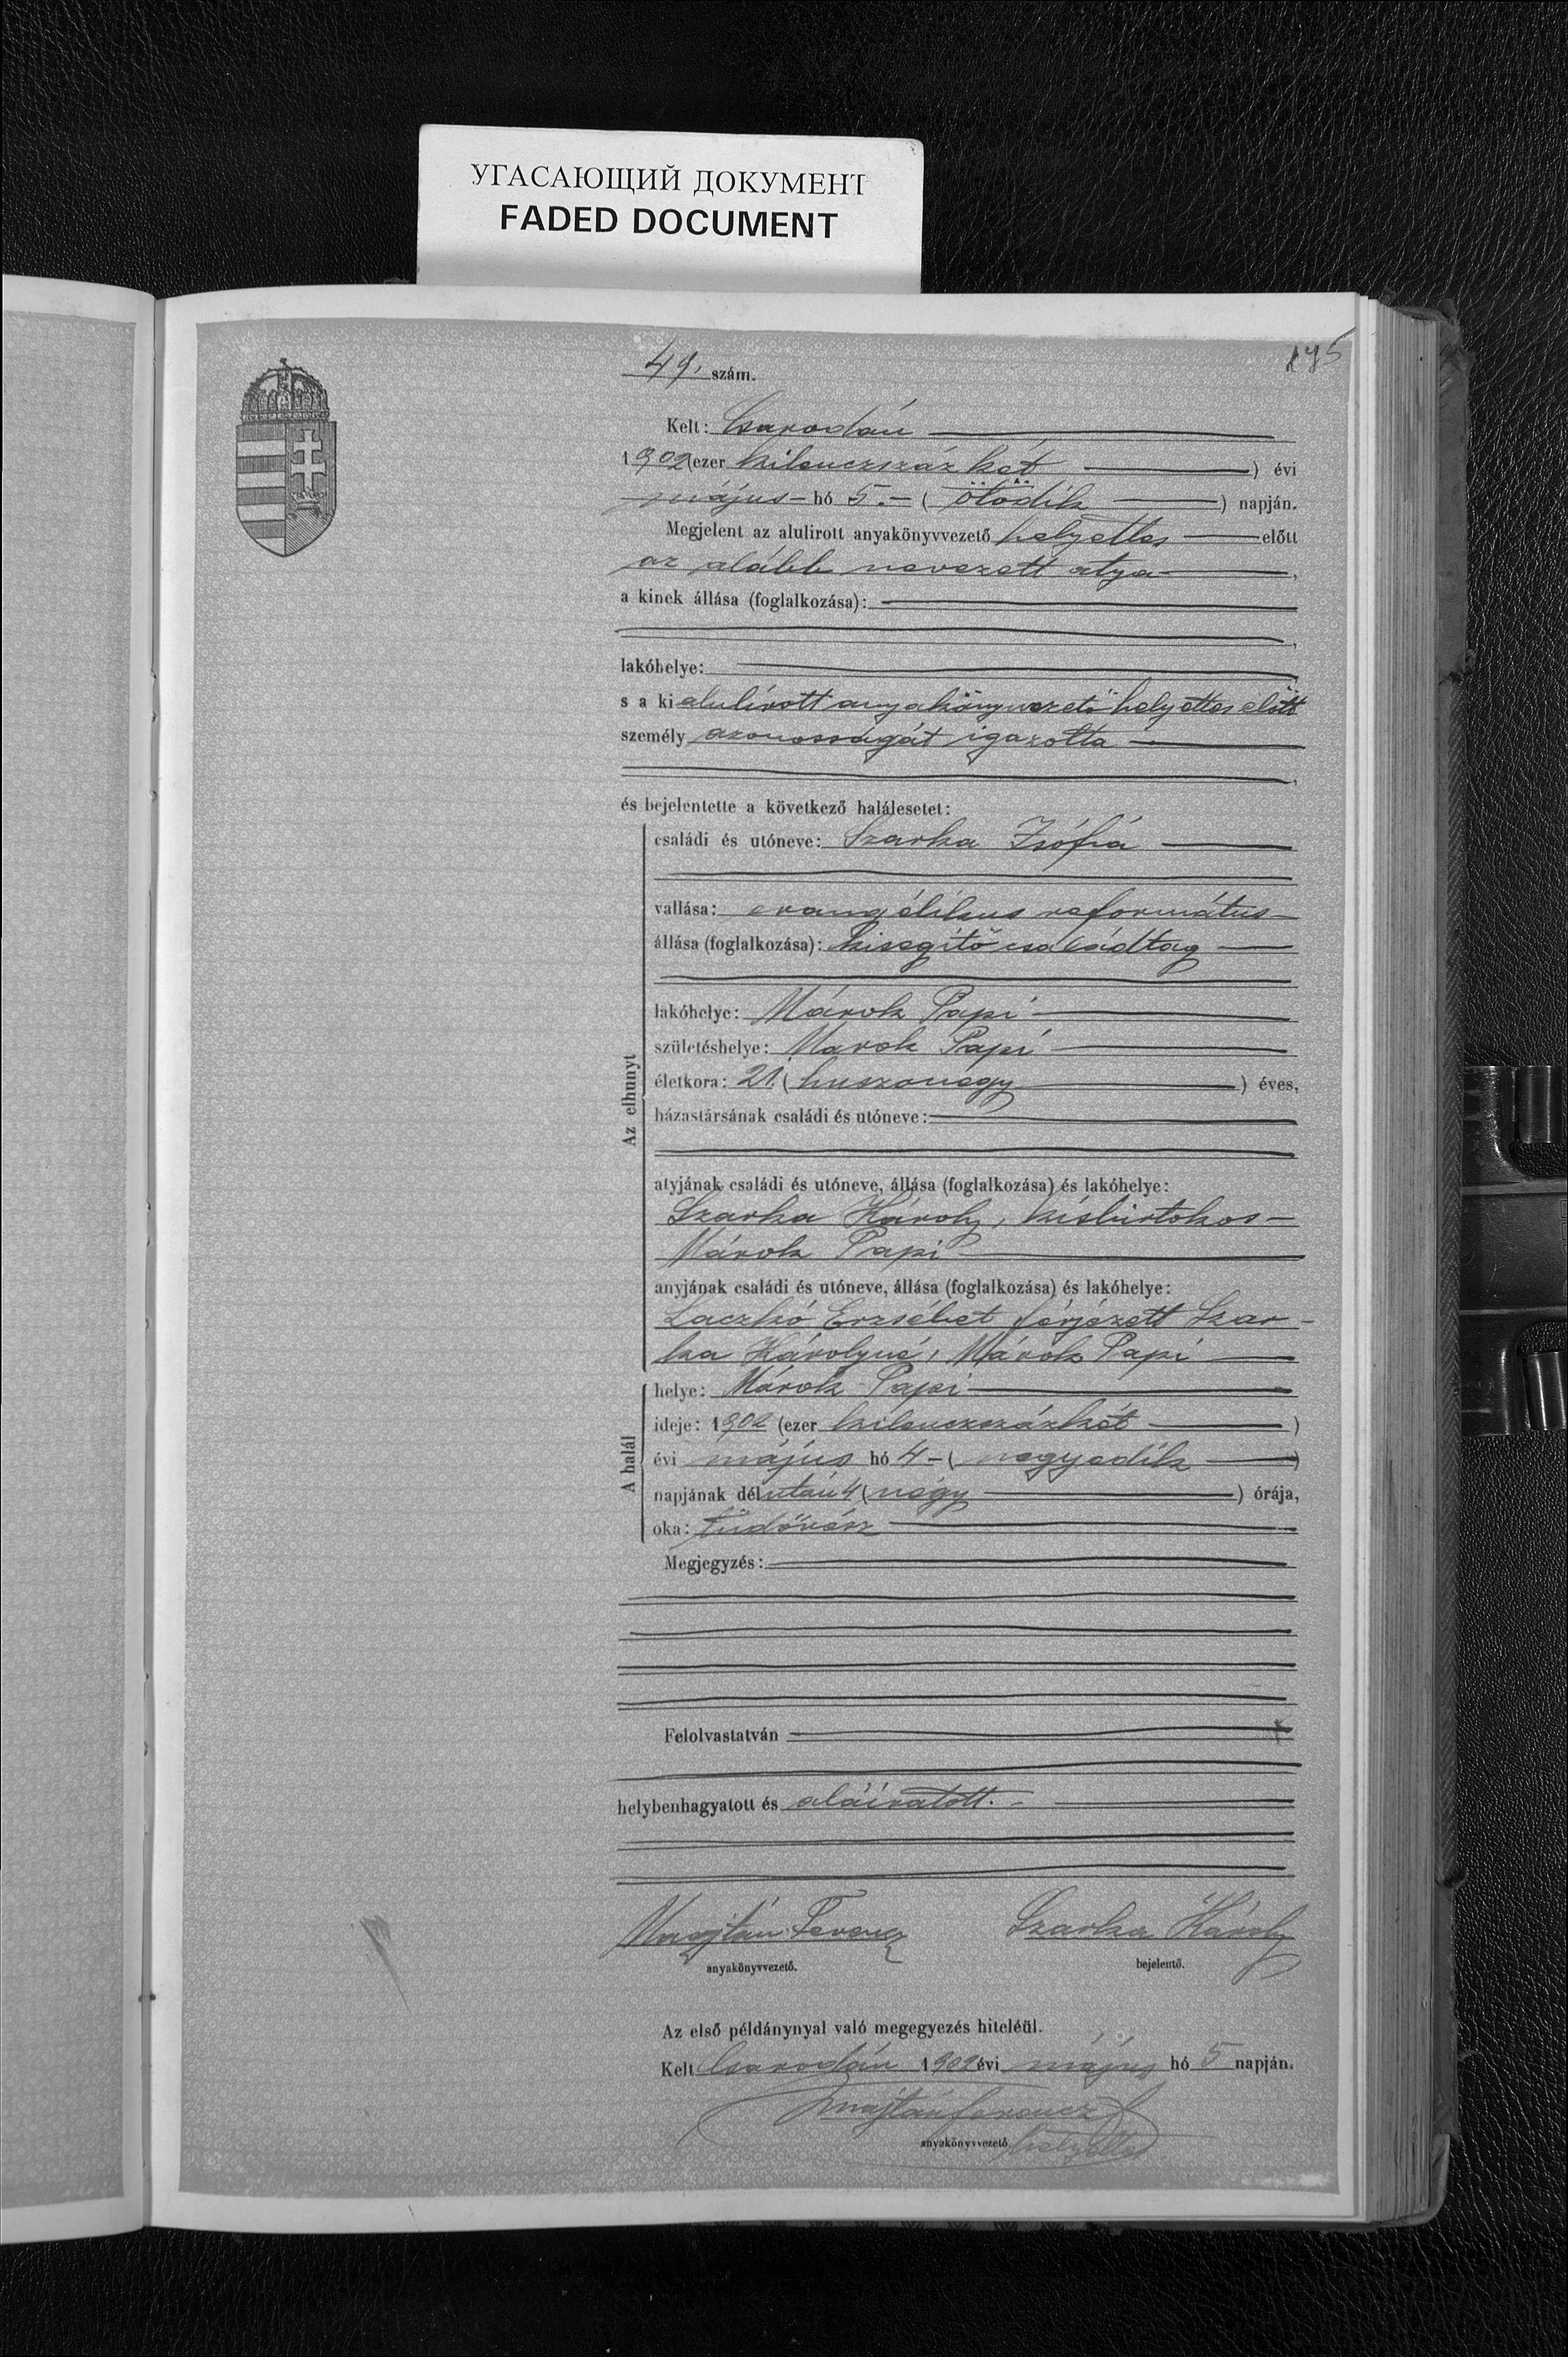 УГАСАЮЩИЙ ДОКУМЕНТ
FADED DOCUMENT
175
49. szám.
Kelt: Csarodán
1902 (ezer kilenczszáz két ) évi
május hó 5. - ( ötödik ) napján.
Megjelent az alulirott anyakönyvvezető helyettes előtt
az alább nevezett atya ,
a kinek állása (foglalkozása):
,
lakóhelye:
s a ki alulírott anyakönyvvezető helyettes előtt
személy azonosságát igazolta
,
és bejelentette a következő halálesetet:
Az elhunyt
családi és utóneve: Szarka Zsófia
vallása: evangélikus református
állása (foglalkozása): kisegítő családtag
lakóhelye: Márok Papi
születéshelye: Márok Papi
életkora: 21. ( huszonegy ) éves,
házastársának családi és utóneve:
atyjának családi és utóneve, állása (foglalkozása) és lakóhelye:
Szarka Károly, kisbirtokos -
Márok Papi
anyjának családi és utóneve, állása (foglalkozása) és lakóhelye:
Laczkó Erzsébet férjezett Szar-
ka Károlyné, Márok Papi
A halál
helye: Márok Papi
ideje: 1902 (ezer kilenczszázkét )
évi május hó 4 - ( negyedik )
napjának délután 4 ( négy ) órája,
oka: tüdővész
Megjegyzés:
Felolvastatván
helybenhagyatott és aláíratott. -
Majtán Ferencz Szarka Károly
anyakönyvvezető. bejelentő.
Az első példánynyal való megegyezés hiteléül.
Kelt Csarodán 1902 évi május hó 5 napján.
Majtán Ferencz
anyakönyvvezető helyettes